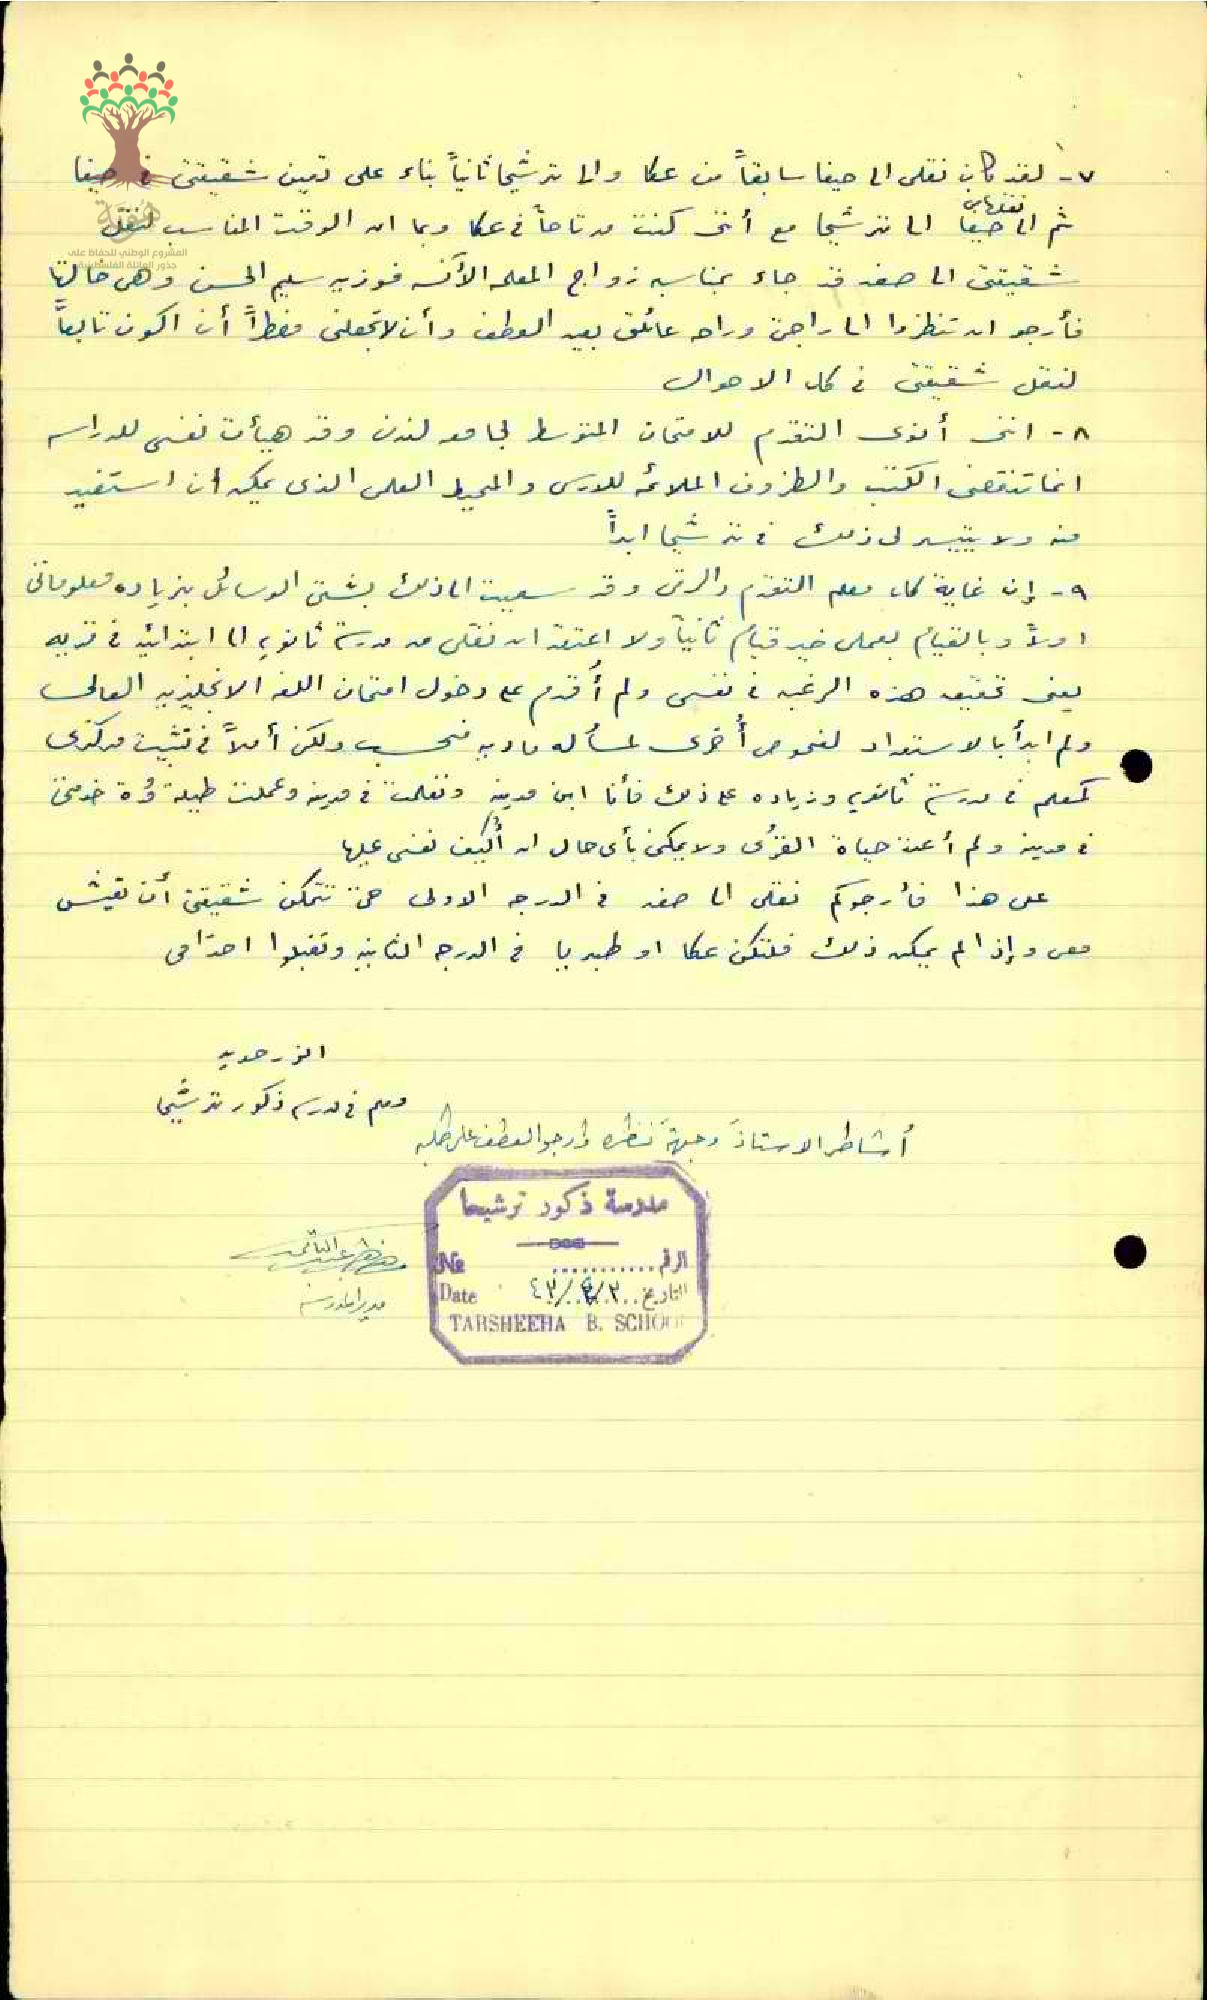 هُوِيَّة
المشروع الوطني للحفاظ على
جذور العائلة الفلسطينية
٧- لقد كان نقلى الى حيفا سابقاً من عكا والى ترشيحا ثانياً بناء على تعيين شقيقتى فى حيفا
نقلها من
ثم الى حيفا الى ترشيحا مع أننى كنت مرتاحاً فى عكا وبما ان الوقت المناسب لنقل
شقيقتى الى صفد قد جاء بمناسبه زواج المعلمه الآنسه فوزيه سليم الحسن وهى خالتها
فأرجو ان تنظروا الى راحتى وراحه عائلتى بعين العطف وأن لا تجعلنى مضطراً أن اكون تابعاً
لنقل شقيقتى فى كل الاحوال
٨- اننى أنوى التقدم للامتحان المتوسط لجامعه لندن وقد هيأت نفسى للدراسه
انما تنقصنى الكتب والظروف الملائمه للدرس والمحيط العلمى الذى يمكن أن استفيد
منه ولا يتيسر لى ذلك فى ترشيحا ابداً
٩- إن غاية كل معلم التقدم والرقى وقد سعيت الى ذلك بشتى الوسائل بزياده معلوماتى
اولاً وبالقيام بعملى خير قيام ثانياً ولا اعتقد ان نقلى من مدرسة ثانويه الى ابتدائيه فى قريه
يعنى تحقيق هذه الرغبه فى نفسى ولم أُقدم على دخول امتحان اللغه الانجليزيه العالى
ولم ابدأ بالاستعداد لفحوص أُخرى لمسأله ماديه فحسب ولكن أملاً فى تثبيت مركزى
كمعلم فى مدرسة ثانويه وزياده على ذلك فأنا ابن مدينه وتعلمت فى مدينه وعملت طيلة مدة خدمتى
فى مدينه ولم أعتد حياة القرى ولا يمكن بأى حال ان أُكيف نفسى عليها
على هذا فأرجوكم نقلى الى صفد فى الدرجه الاولى حتى تتمكن شقيقتى أن تعيش
معى وإذا لم يمكن ذلك فلتكن عكا او طبريا فى الدرجه الثانيه وتقبلوا احترامى
انور حديد
معلم فى مدرسه ذكور ترشيحا
أُشاطر الاستاذ وجهة نظره وارجو العطف على طلبه
مدير المدرسه
مدرسة ذكور ترشيحا
الرقم ............ №
التاريخ ٤٣/٤/٣ Date
TARSHEEHA B. SCHOOL